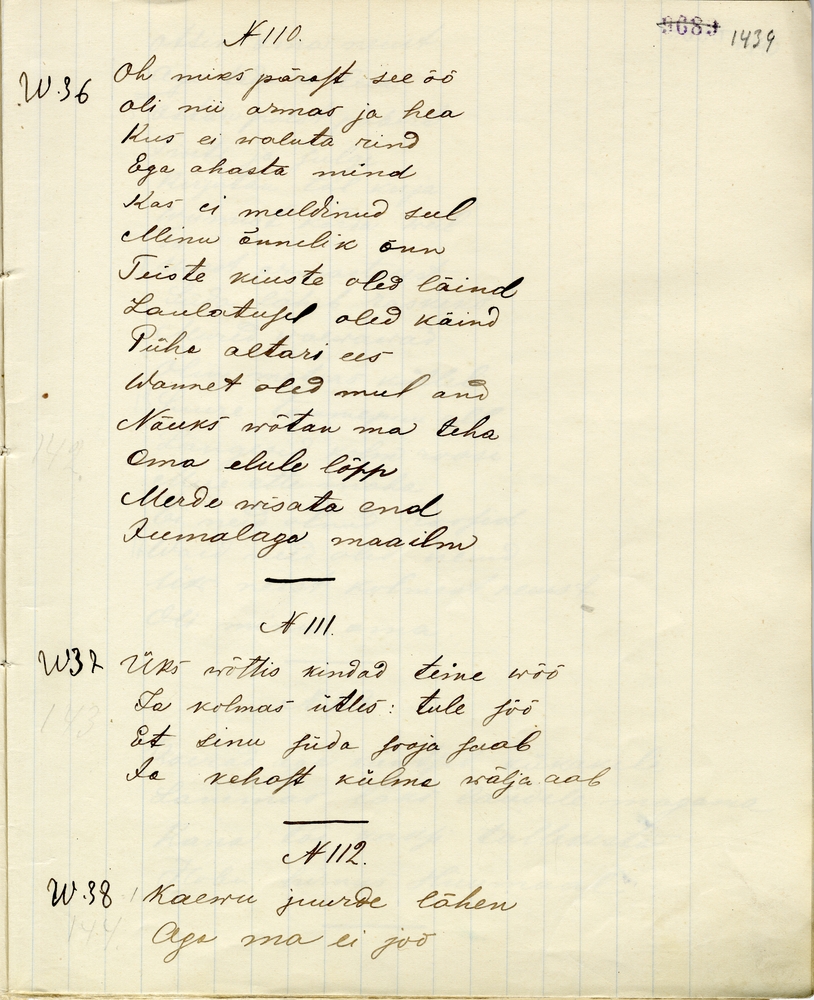 N 110.
9689 1439
W. 36 Oh miks pärast see öö
oli nii armas ja hea
Kus ei waluta rind
Ega ahasta mind
Kas ei meeldinud seel
Minu õnnelik õnn
Teiste kiuste oled läind
Laulatusel oled käind
Püha altari ees
Wannet oled mul and
Näuks wõtan ma teha
Oma elule lõpp
Merde wisata end
Jumalaga maailm
N 111.
W37 Üks wõttis kindad teine wöö
143
Ja kolmas ütles: tule söö
Et sinu süda sooja saab
Ja kehast külma wälja aab
N 112.
W. 38 Kaewu juurde lähen
144
Aga ma ei joo